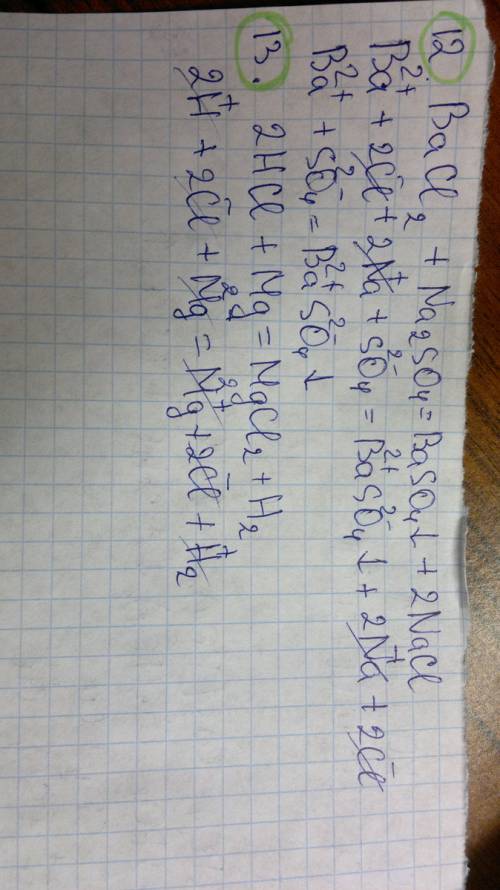 12 BaCl₂ + Na₂SO₄ = BaSO₄↓ + 2NaCl
Ba²⁺ + 2Cl⁻ + 2Na⁺ + SO₄²⁻ = Ba²⁺SO₄²⁻↓ + 2Na⁺ + 2Cl⁻
Ba²⁺ + SO₄²⁻ = Ba²⁺SO₄²⁻↓
13. 2HCl + Mg = MgCl₂ + H₂
2H⁺ + 2Cl⁻ + Mg = Mg²⁺ + 2Cl⁻ + H₂⁺